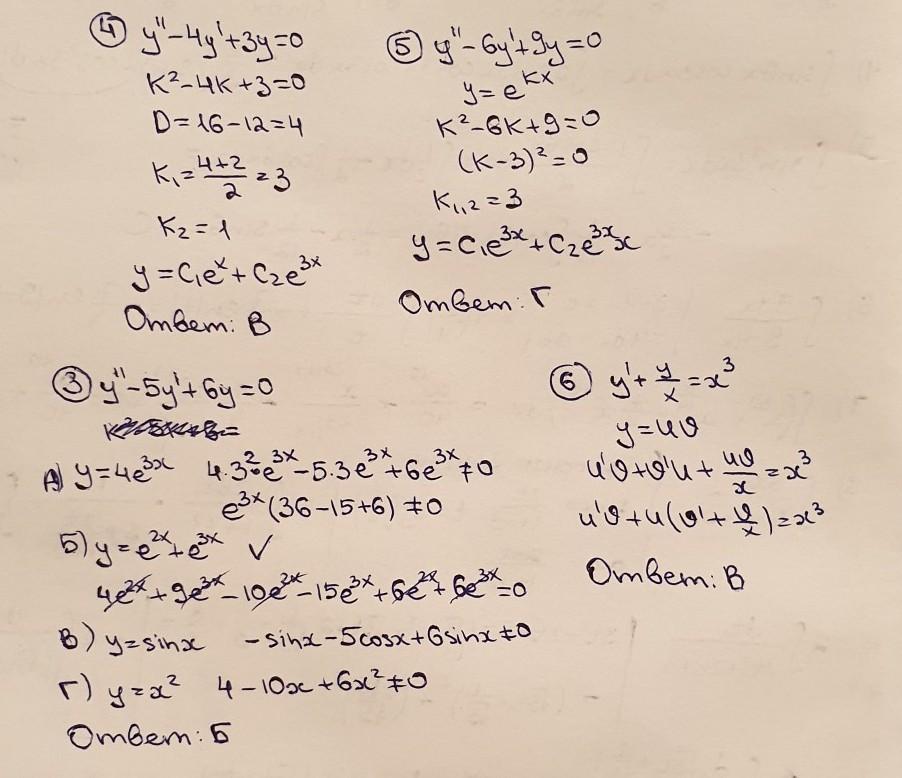 ④ y''-4y'+3y=0
K²-4K+3=0
D=16-12=4
K₁=(4+2)/2=3
K₂=1
y=C₁eˣ+C₂e³ˣ
Ответ: В
⑤ y''-6y'+9y=0
y=eᴷˣ
K²-6K+9=0
(K-3)²=0
K₁,₂=3
y=C₁e³ˣ+C₂e³ˣx
Ответ: Г
③ y''-5y'+6y=0
А) y=4e³ˣ 4·3²·e³ˣ-5·3e³ˣ+6e³ˣ≠0
e³ˣ(36-15+6)≠0
Б) y=e²ˣ+e³ˣ ✓
4e²ˣ+9e³ˣ-10e²ˣ-15e³ˣ+6e²ˣ+6e³ˣ=0
В) y=sinx -sinx-5cosx+6sinx≠0
Г) y=x² 4-10x+6x²≠0
Ответ: Б
⑥ y'+y/x=x³
y=uv
u'v+v'u+uv/x=x³
u'v+u(v'+v/x)=x³
Ответ: В